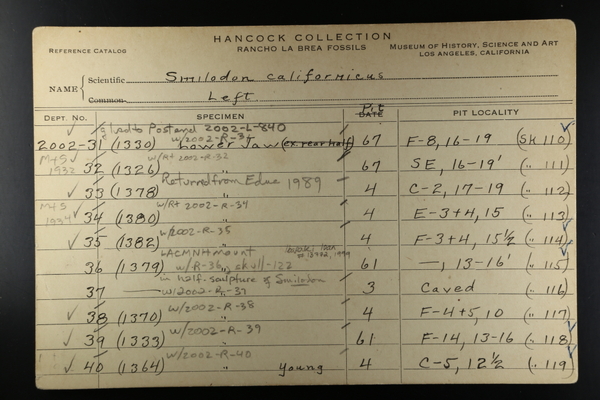 HANCOCK COLLECTION
REFERENCE CATALOG
RANCHO LA BREA FOSSILS
MUSEUM OF HISTORY, SCIENCE AND ART
LOS ANGELES, CALIFORNIA
NAME
Scientific Smilodon californicus
Common Left
DEPT. NO. SPECIMEN Pit DATE PIT LOCALITY
Glued to Posterior 2002-L-840
w/2002-R-31
2002-31 (1330) Lower Jaw (ex. rear half) 67 F-8, 16-19 (Sk 110)
M+S 1932 w/R+ 2002-R-32
32 (1326) " 67 SE, 16-19' (" 111)
Returned from Educ 1989
33 (1378) " 4 C-2, 17-19 (" 112)
M+S 1934 w/R+ 2002-R-34
34 (1380) " 4 E-3+4, 15 (" 113)
w/2002-R-35
35 (1382) " 4 F-3+4, 15½ (" 114)
LACMNH mount
36 (1379) w/R-36, skull-122 61 —, 13-16' (" 115)
in half-sculpture of Smilodon
37 w/2002-R-37 3 Caved (" 116)
w/2002-R-38
38 (1370) " 4 F-4+5, 10 (" 117)
w/2002-R-39
39 (1333) " 61 F-14, 13-16 (" 118)
w/2002-R-40
40 (1364) " young 4 C-5, 12½ (" 119)